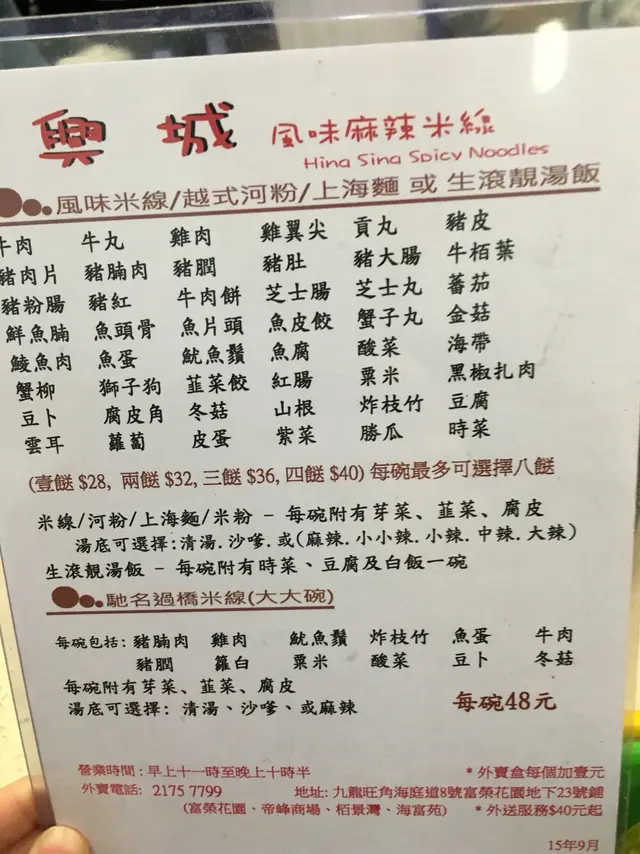 興 城 風味麻辣米線
Hing Sing Spicy Noodles
風味米線/越式河粉/上海麵 或 生滾靚湯飯
牛肉 牛丸 雞肉 雞翼尖 貢丸 豬皮
豬肉片 豬腩肉 豬膶 豬肚 豬大腸 牛栢葉
豬粉腸 豬紅 牛肉餅 芝士腸 芝士丸 蕃茄
鮮魚腩 魚頭骨 魚片頭 魚皮餃 蟹子丸 金菇
鯪魚肉 魚蛋 魷魚鬚 魚腐 酸菜 海帶
蟹柳 獅子狗 韮菜餃 紅腸 粟米 黑椒扎肉
豆卜 腐皮角 冬菇 山根 炸枝竹 豆腐
雲耳 蘿蔔 皮蛋 紫菜 勝瓜 時菜
(壹餸 $28, 兩餸 $32, 三餸 $36, 四餸 $40) 每碗最多可選擇八餸
米線/河粉/上海麵/米粉 – 每碗附有芽菜、韮菜、腐皮
湯底可選擇:清湯.沙嗲.或(麻辣.小小辣.小辣.中辣.大辣)
生滾靚湯飯 – 每碗附有時菜、豆腐及白飯一碗
馳名過橋米線(大大碗)
每碗包括: 豬腩肉 雞肉 魷魚鬚 炸枝竹 魚蛋 牛肉
豬膶 籮白 粟米 酸菜 豆卜 冬菇
每碗附有芽菜、韮菜、腐皮
湯底可選擇: 清湯、沙嗲、或麻辣
每碗48元
營業時間 : 早上十一時至晚上十時半
*外賣盒每個加壹元
外賣電話: 2175 7799
地址: 九龍旺角海庭道8號富榮花園地下23號鋪
(富榮花園、帝峰商場、栢景灣、海富苑)
*外送服務$40元起
15年9月